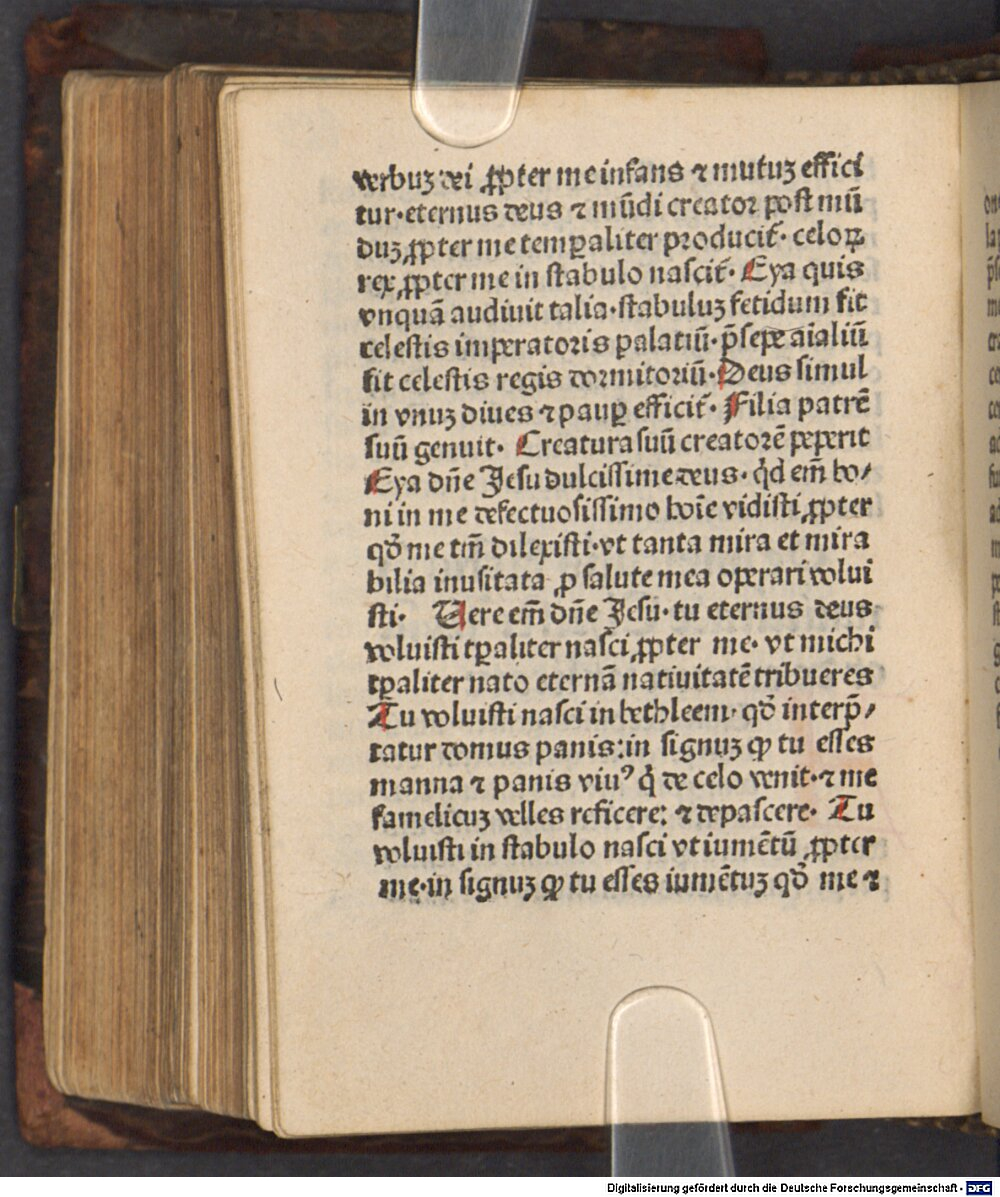 verbuꝫ dei ꝓpter me infans ⁊ mutuꝫ effici
tur·eternus deus ⁊ mūdi creator post mū
duꝫ ꝓpter me temꝑaliter producit̄· celoꝝ
rex ꝓpter me in stabulo nascit̄· Eya quis
vnquā audiuit talia·stabuluꝫ fetidum fit
celestis imperatoris palatiū· p̄sepe aīaliū
fit celestis regis dormitoriū· Deus simul
in vnuꝫ diues ⁊ pauꝑ efficit̄· Filia patrē
suū genuit· Creatura suū creatorē peperit
Eya dn̄e Jesu dulcissime deus· qͥd em̄ bo/
ni in me defectuosissimo hoīe vidisti ꝓpter
qđ me tm̄ dilexisti·vt tanta mira et mira
bilia inusitata ꝓ salute mea operari volui
sti· Uere em̄ dn̄e Jesu· tu eternus deus
voluisti tꝑaliter nasci ꝓpter me· vt michi
tꝑaliter nato eternā natiuitatē tribueres
Tu voluisti nasci in bethleem· qđ interp̄/
tatur domus panis:in signuꝫ ꝙ tu esses
manna ⁊ panis viuꝰ qͥ de celo venit·⁊ me
famelicuꝫ velles reficere: ⁊ depascere· Tu
voluisti in stabulo nasci vt iumētū ꝓpter
me·in signuꝫ ꝙ tu esses iumētuꝫ qđ me ⁊
Digitalisierung gefördert durch die Deutsche Forschungsgemeinschaft - DFG